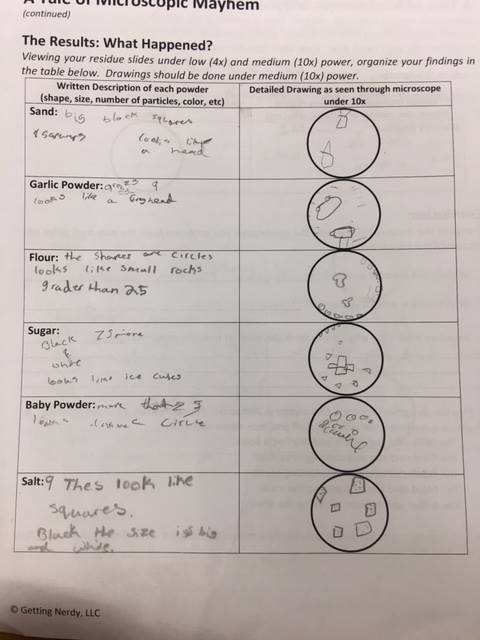 A Tale of Microscopic Mayhem
(continued)
The Results: What Happened?
Viewing your residue slides under low (4x) and medium (10x) power, organize your findings in
the table below. Drawings should be done under medium (10x) power.
Written Description of each powder
(shape, size, number of particles, color, etc)
Detailed Drawing as seen through microscope
under 10x
Sand: big black squares
looks like
a head
Garlic Powder: 9
looks like a head
Flour: the shapes are circles
looks like small rocks
grader than 25
Sugar:
Black 25 more
&
white
looks like ice cubes
Baby Powder: more than 25
circle
Salt: 9 Thes look like
squares.
Black the size is big
and white.
© Getting Nerdy, LLC